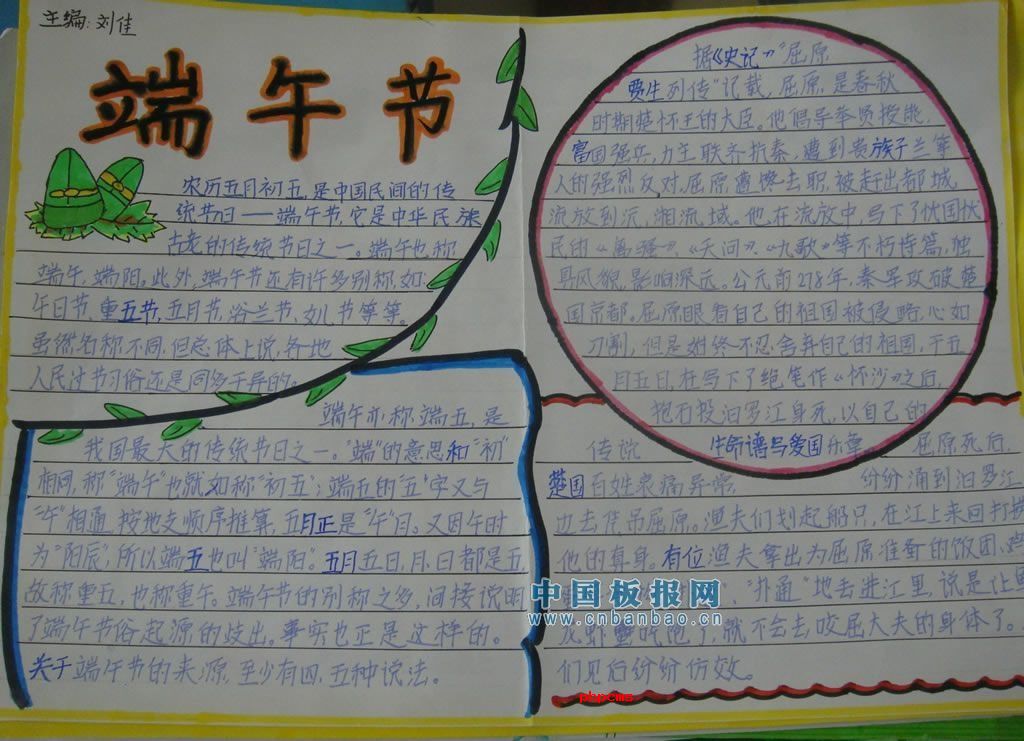 主编：刘佳
端午节
农历五月初五，是中国民间的传
统节日——端午节，它是中华民族
古老的传统节日之一。端午也称
端午，端阳。此外，端午节还有许多别称，如
午日节，重五节，五月节，浴兰节，女儿节等等。
虽然名称不同，但总体上说，各地
人民过节习俗还是同多于异的。
端午亦称端五，是
我国最大的传统节日之一。"端"的意思和"初"
相同，称"端午"也就如称"初五"；端五的"五"字又与
"午"相通，按地支顺序推算，五月正是"午"月。又因午时
为"阳辰"，所以端五也叫"端阳"。五月五日，月、日都是五，
故称重五，也称重午。端午节的别称之多，间接说明
了端午节俗起源的歧出。事实也正是这样的。
关于端午节的来源，至少有四、五种说法。
据《史记》"屈原
贾生列传"记载，屈原，是春秋
时期楚怀王的大臣。他倡导举贤授能，
富国强兵，力主联齐抗秦，遭到贵族子兰等
人的强烈反对，屈原遭馋去职，被赶出都城，
流放到沅、湘流域。他在流放中，写下了忧国忧
民的《离骚》、《天问》、《九歌》等不朽诗篇，独
具风貌，影响深远。公元前278年，秦军攻破楚
国京都。屈原眼看自己的祖国被侵略，心如
刀割，但是始终不忍舍弃自己的祖国，于五
月五日，在写下了绝笔作《怀沙》之后，
抱石投汨罗江身死，以自己的
生命谱写爱国乐章。
传说 屈原死后，
楚国百姓哀痛异常， 纷纷涌到汨罗江
边去凭吊屈原。渔夫们划起船只，在江上来回打捞
他的真身。有位渔夫拿出为屈原准备的饭团、鸡
"扑通"地丢进江里，说是让鱼
龙虾蟹吃饱了，就不会去咬屈大夫的身体了。
们见后纷纷仿效。
中国板报网
www.cnbanbao.cn
phpcms